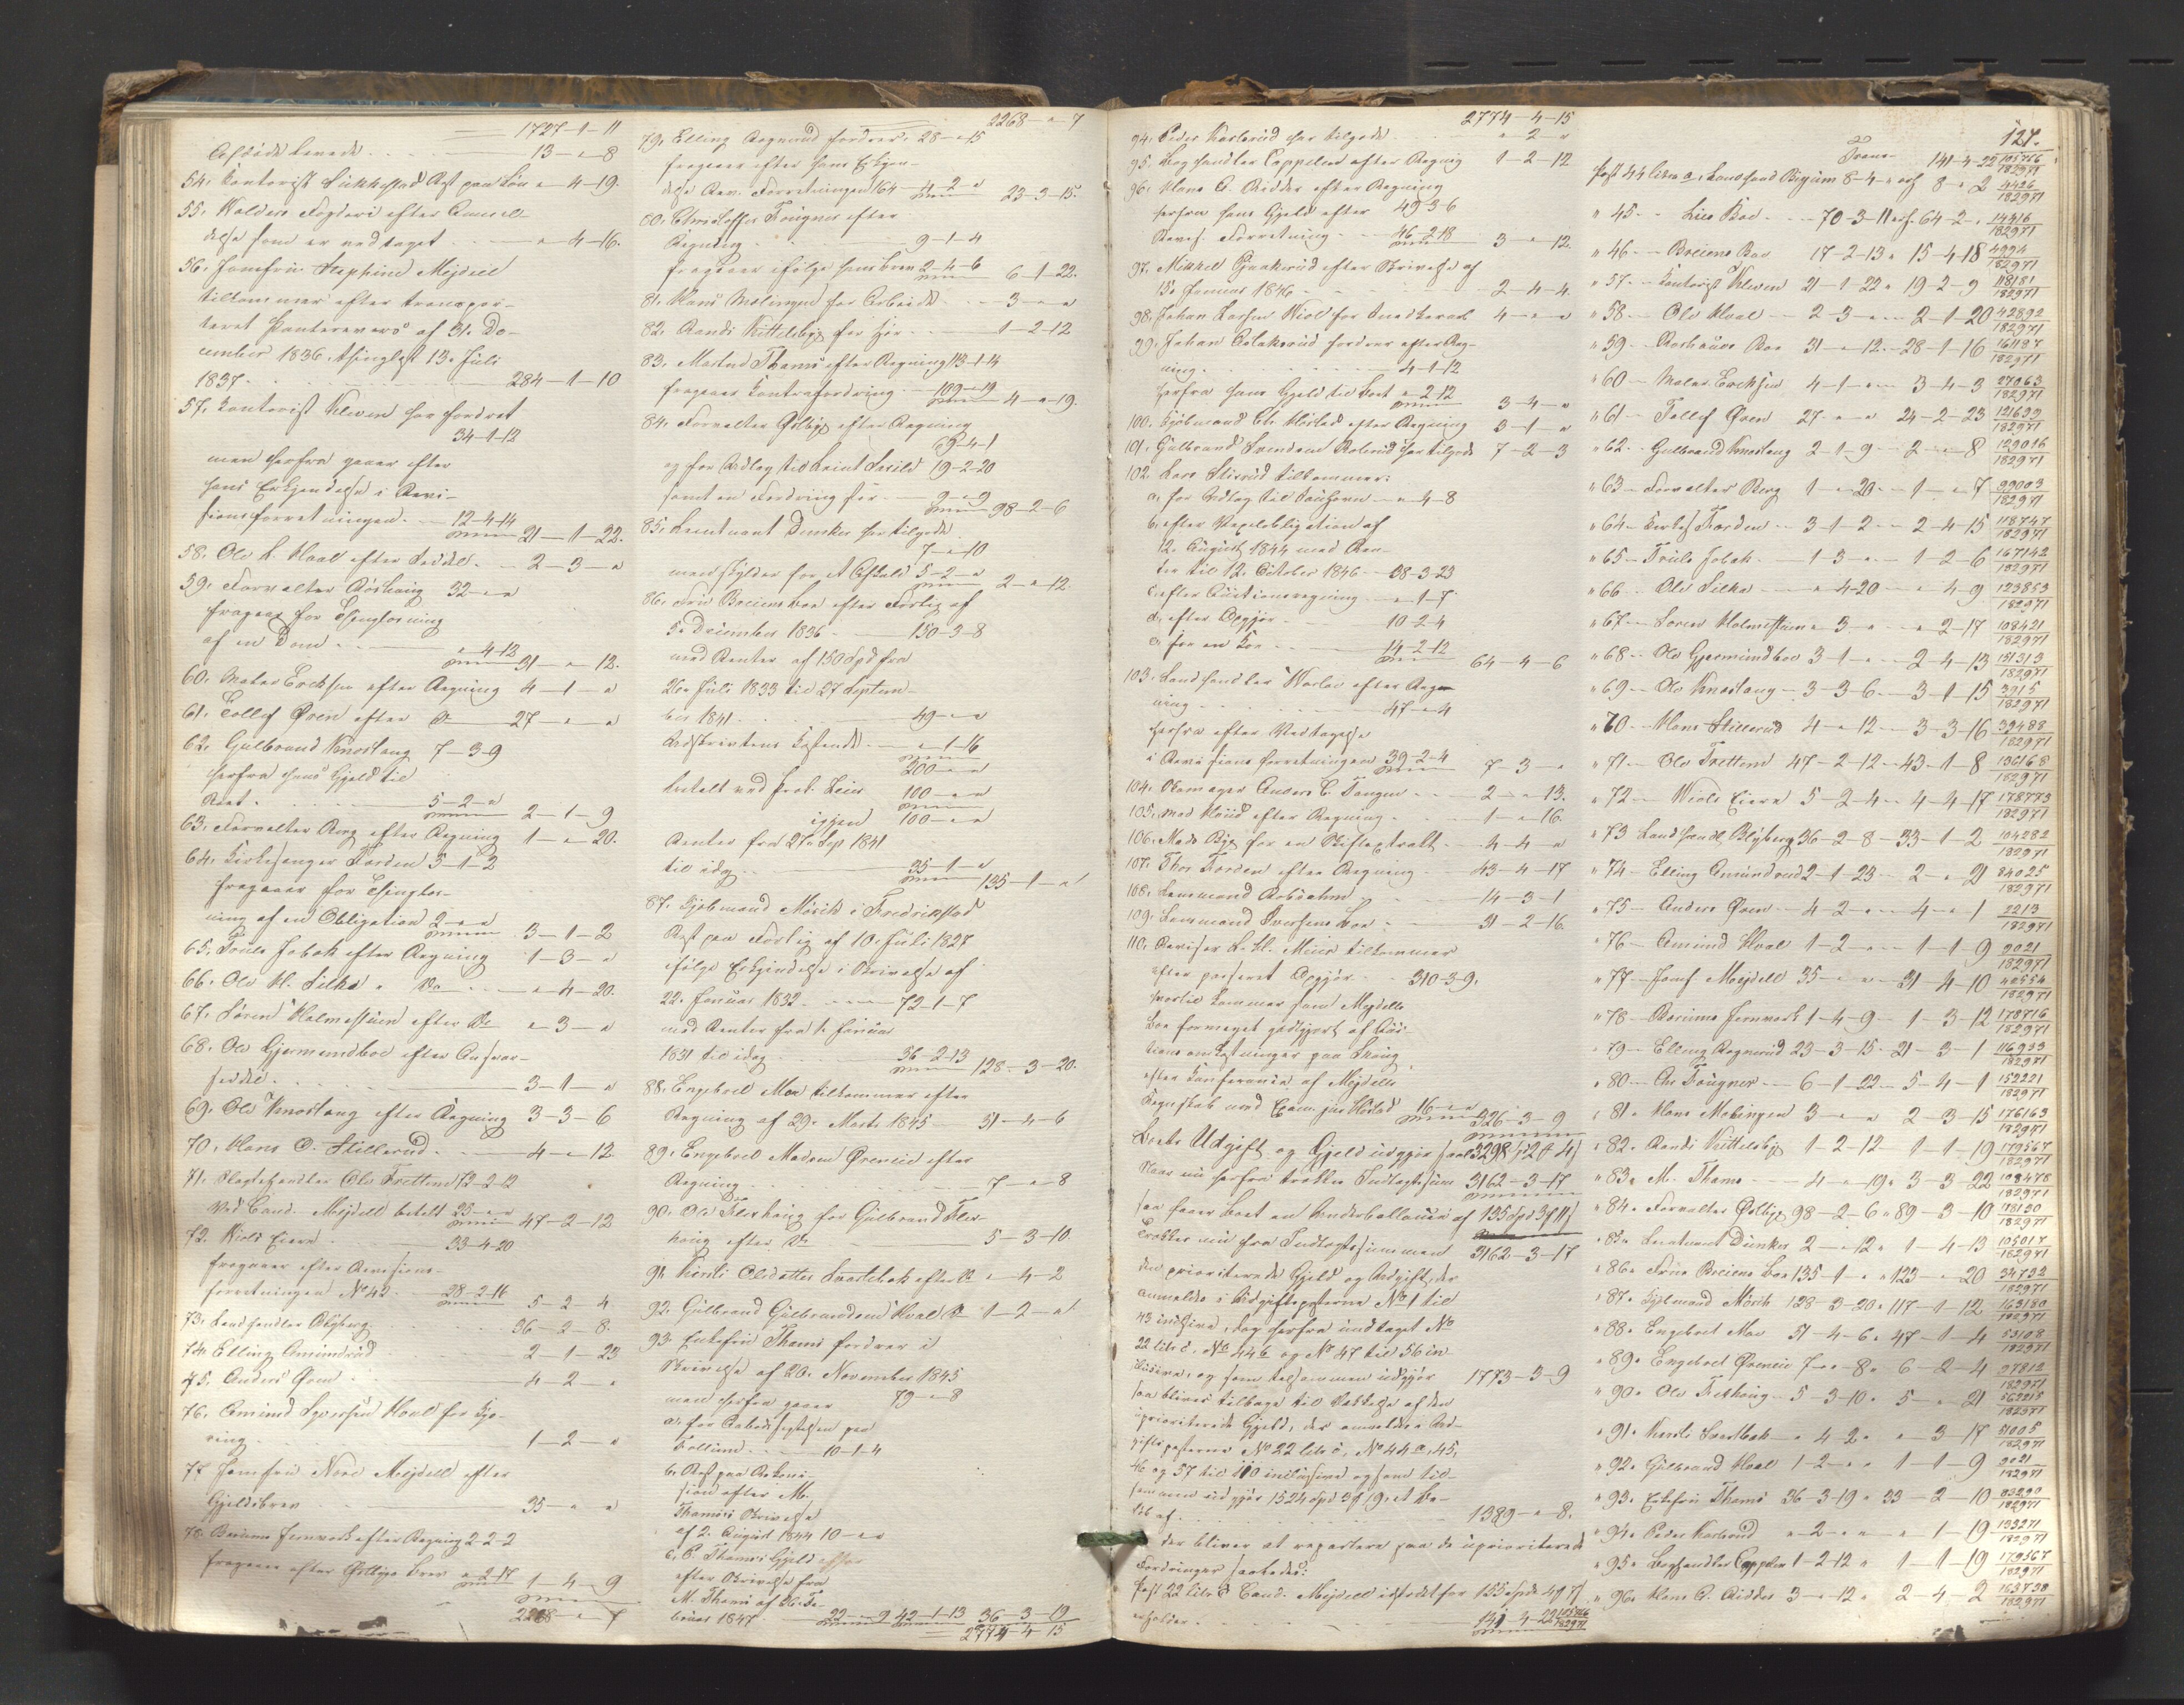 1727-1-11
13-"-8
54, Kontorist Lükkestad Rest paa Løn " 4-19.
55, Valders Fogderi efter Anmel-
delse som er vedtaget " 4-16.
56, Jomfrue Stephine Mejdell
tilkommer efter transpor-
teret Panterevers af 31. De-
cember 1836, thinglæst 13. Juli
1837. 284-1-10
57, Kontorist Klewen har fordret
34-1-12
men herfra gaaer efter
hans Erkjendelse i Revi-
sionsforretningen. 12-4-14
21-1-22.
58, Ole K. Hval efter Seddel. 2-3-"
59, Forvalter Røshaug 32-"-"
fragaaer for Thinglæsning
af en Dom "-4-12
31-"-12.
60. Mahar Erichsen efter Regning 4-1-"
61. Tollef Øren efter Do 27-"-"
62. Gulbrand Knestang 7-3-9
herfra hans Gjeld til
Boet. 5-2-"
2-1-9
63. Forvalter Berg efter Regning 1-"-20.
64. Kirkesanger Færden 5-1-2
fragaaer for Thinglæs-
ning af en Obligation 2-"-"
3-1-2
65. Truls Jobak efter Regning 1-3-"
66. Ole H. Silka " Do "-4-20.
67. Søren Holmestuen efter Do "-3-"
68. Ole Gjermundboe efter Ansvar-
seddel. 3-1-"
69. Ole Knestang efter Regning 3-3-6
70, Hans O. Stillerud. 4-"-12
71, Ole Trettem 72-2-12
Ved Cand. Mejdell betalt 25-"-"
47-2-12
72. Niels Eiern 33-4-20
fragaaer efter Revisions-
forretningen No 42. 28-2-16
5-2-4
73, Landhandler Blyberg 36-2-8.
74. Elling Amundrud 2-1-23
75. Anders Øren 4-2-"
76. Amund Iversen Hval for Kjø-
ring 1-2-"
77 Jomfru Mejdell efter
Gjeldsbrev 35-"-"
78. Bærums Jernværk efter Regning 2-2-2
fragaaer efter Østbyes Brev "-2-17
1-4-9
2268-"-7
2268-"-7
79, Elling Rognerud fordrer 28-"-15
fragaaer efter hans Erkjen-
delse Rev. Forretningen 64 4-2-"
23-3-15.
80. Christoffer Fougner efter
Regning 9-1-4
fragaaer ifølge hans Brev 2-4-6
6-1-22.
81. Hans Mælingen for Arbeide 3-"-"
82. Randi Kittelsby for Hør 1-2-12
83. Madame Thams efter Regning 113-1-14
fragaaer Kontrafordring 109-"-19
4-"-19.
84. Forvalter Østbye efter Regning
69-4-1
og for Udlæg til 19-2-20
samt en Fordring for 9-"-9
98-2-6
85, Leutnant Dunker har tilgode
7-"-10
men skylder for et Afkald 5-2-"
2-"-12.
86. Frue Breiens Boe efter Forlig af
5. December 1836. 150-3-8
med Renter af 150 Spd fra
26. Juli 1833 til 27 Septem-
ber 1841 49-"-"
Udskriftens Kostende "-1-16
200-"-"
betalt ved Prok. Leies 100-"-"
igjen 100-"-"
Renter fra 27. Sep. 1841
til idag 35-1-"
135-1-"
87. Kjøbmand Mørch i Fredrikstad
Rest paa Forlig af 10. Juli 1827
ifølge Erkjendelse i Skrivelse af
22. Januar 1832. 72-1-7
med Renter fra 1. Januar
1831 til idag 56-2-13
128-3-20.
88. Engebret Moe tilkommer efter
Regning af 29. Marts 1845 51-4-6
89, Engebret Madsen Øreneie efter
Regning 7-"-8
90, Ole Fleskhoug for Gulbrand Fles-
houg efter Do 5-3-10.
91. Kirsti Olsdatter Svartbak efter Do "-4-2
92. Gulbrand Gulbrandsen Hval Do 1-2-"
93. Enkefru Thams fordrer i
Skrivelse af 20. November 1845
men herfra gaaer 79-"-8
a, for Rabod paa
Follum 10-1-4
b, Rest paa Rekvi-
sion efter M.
Thams's Skrivelse
af 2. August 1844 10-"-"
c, C. Thams's Gjeld efter
efter Skrivelse fra
M. Thams af 26. Fe-
bruar 1847. 22-"-9 42-1-13 36-3-19
2774-4-15
2774-4-15
94. Peder Karlsrud har tilgode "-2-"
95. Boghandler Cappelen efter Regning 1-2-12
96. Hans G. Ridder efter Regning
herfra hans Gjeld efter 49-3-6
Revis. Forretning 46-2-18
3-"-12.
97. Mikkel Gjaakerud efter Skrivelse af
15. Januar 1846 2-4-4.
98. Johan Larsen Wiel for 4-"-"
99. Johan Aslakrud fordrer efter Reg-
ning. 4-1-12
herfra hans Gjeld til Boet "-2-12
3-4-"
100. Kjøbmand Ch. Hoelstad efter Regning 3-1-"
101. Gulbrand Svendsen Rolerud har tilgode 7-2-3
102. Lars Stixrud tilkommer:
a, for Udlæg til Rauhorn "-4-8
b, efter Vexelobligation af
12. August 1844 med Ren-
ter til 12. October 1846 38-3-23
c, efter Auctionsregning "-1-7
d, efter Opgjør 10-2-4
e, for en Koe 14-2-12
64-4-6
103. Landhandler Warloe efter Reg-
ning 47-"-4
herfra efter Vedtagelse
i Revisionsforretningen 39-2-4
7-3-"
104. Skomager Anders C. Tangen 2-"-13.
105. Mads Haug efter Regning 1-"-16.
106. Mads Bye for en Skifteextrakt 4-4-"
107. Thor Færden efter Regning 43-4-17
108. Lensmand Arbodahm 14-3-1
109. Lensmand Iversens Boe 31-2-16.
110. Revisor L. H. Meier tilkommer
efter passeret Opgjør 310-3-9.
hvortil kommer som Mejdells
Boe formeget godtgjort af Auc-
tionsomkostninger paa Skoug
efter Konferance af Mejdells
Regnskab med Exam. jur. Hoelstad 16-"-"
326-3-9
Boets Udgift og Gjeld udgjør saal. 3298/2/4
Naar nu herfra trækkes Indtægtssum 3162-3-17
saa faaer Boet en Underballance af 135 Spd 3/11
Trækkes nu fra Indtægtssummen 3162-3-17
den prioriterede Gjeld og Udgift, der
anmeldes i Udgiftsposterne No 1 til
43 inclusive, dog herfra undtaget No
22 litr c, No 44 b og No 47 til 56 in-
clusive, og som tilsammen udgjør 1773-3-9
saa bliver tilbage til Dækkelse af den
uprioriterede Gjeld, der anmeldes i Ud-
giftsposterne No 22 litr c, No 44 a, 45,
46 og 57 til 110 inclusive og som til-
sammen udgjør 1524 Spd 3/9, et Be-
løb af 1389-"-8.
der bliver at repartere paa de uprioriterede
Fordringer saaledes:
Post 22 litr c Cand. Mejdell istedetfor 155 Spd 4/7
erholder 141-4-22 105756/182971
127.
Trans- 141-4-22 105756/182971
Post 44 litra a, Landhand Bigum 8-4-" erh. 8-"-2 4426/182971
" 45. Lies Boe 70-3-11 erh. 64-2-" 14416/182971
" 46. Breiens Boe 17-2-13 " 15-4-18 4994/182971
" 57. Kontorist Klewen 21-1-22 " 19-2-9 118181/182971
" 58. Ole Hval 2-3-" 2-1-20 42892/182971
" 59. Røshaugs Boe 31-"-12 28-1-16 161187/182971
" 60. Mahar Erichsen 4-1-" 3-4-3 27063/182971
" 61. Tollef Øren 27-"-" 24-2-23 121699/182971
" 62. Gulbrand Knestang 2-1-9 2-"-8 129016/182971
" 63. Forvalter Berg 1-"-20 1-"-7 99003/182971
" 64. Kirkes. Færden 3-1-2 2-4-15 118747/182971
" 65. Truls Jobak 1-3-" 1-2-6 167142/182971
" 66. Ole Silka "-4-20 "-4-9 123853/182971
" 67. Søren Holmestuen "-3-" "-2-17 108421/182971
" 68. Ole Gjermundboe 3-1-" 2-4-13 151313/182971
" 69. Ole Knestang 3-3-6 3-1-15 3915/182971
" 70. Hans Stillerud 4-"-12 3-3-16 39488/182971
" 71. Ole Trettem 47-2-12 43-1-8 136168/182971
" 72. Niels Eiern 5-2-4 4-4-17 178773/182971
" 73 Landhandl. Blyberg 36-2-8 33-1-2 104282/182971
" 74. Elling Amundrud 2-1-23 2-"-21 84025/182971
" 75. Anders Øren 4-2-" 4-"-1 2213/182971
" 76. Amund Hval 1-2-" 1-1-9 9021/182971
" 77. Jomf. Mejdell 35-"-" 31-4-10 42554/182971
" 78. Bærums Jernværk 1-4-9 1-3-12 178716/182971
" 79. Elling Rognerud 23-3-15 21-3-1 116933/182971
" 80. Chr Fougner 6-1-22 5-4-1 152221/182971
" 81. Hans Mælingen 3-"-" 2-3-15 176163/182971
" 82. Randi Kittelsby 1-2-12 1-1-19 179567/182971
" 83. M. Thams 4-"-19 " 3-3-22 108478/182971
" 84. Forvalter Østbye 98-2-6 " 89-3-10 78130/182971
" 85. Leutnant Dunker 2-"-12 " 1-4-13 105017/182971
" 86. Frue Breiens Boe 135-1-" " 123-"-20 34732/182971
" 87. Kjøbmand Mørch 128-3-20 " 117-1-12 163180/182971
" 88. Engebret Moe 51-4-6 " 47-1-4 53108/182971
" 89. Engebret Øreneie 7-"-8 " 6-2-4 27812/182971
" 90. Ole Fleskhoug 5-3-10 " 5-"-21 56225/182971
" 91. Kirsti Svartbak "-4-2 " "-3-17 51005/182971
" 92. Gulbrand Hval 1-2-" " 1-1-9 9021/182971
" 93. Enkefru Thams 36-3-19 " 33-2-10 83290/182971
" 94. Peder Karlsrud "-2-" " "-1-19 133271/182971
" 95. Boghandler Cappelen 1-2-12 " 1-1-19 179567/182971
" 96. Hans G. Ridder 3-"-12 " 2-4-2 163738/182971